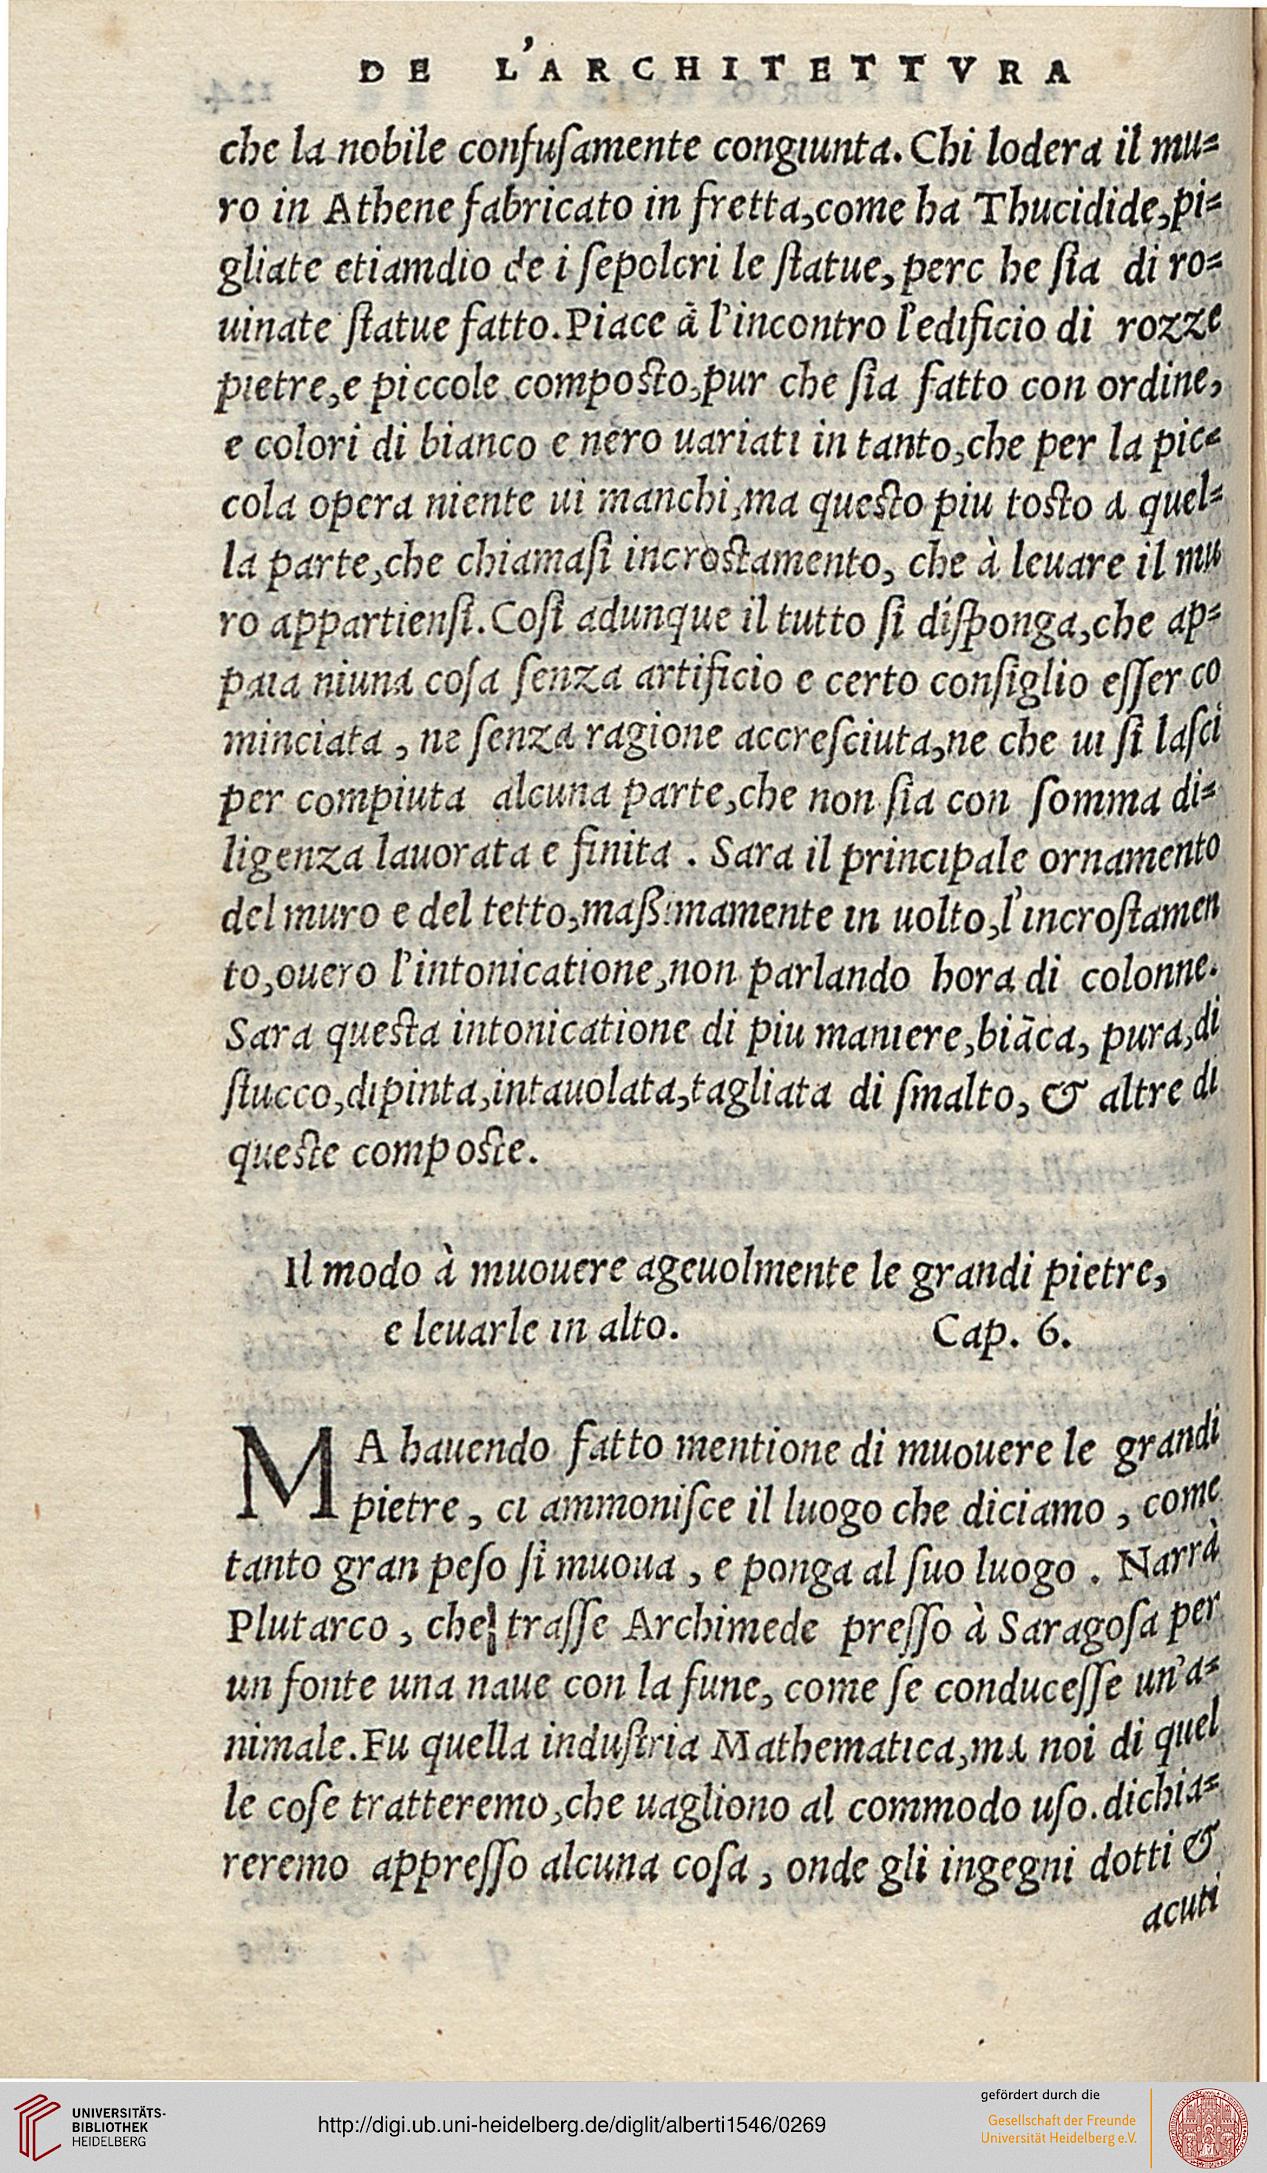 DE L'ARCHITETTVRA
che la nobile confuſamente congiunta. Chi lodera il mu=
ro in Athene fabricato in fretta,come ha Thucidide,pi=
gliate etiamdio de i ſepolcri le ſtatue, perc he ſia di ro=
uinate ſtatue fatto.Piace à l'incontro l'edificio di rozze
pietre,e piccole compoſto,pur che ſia fatto con ordine,
e colori di bianco e nero uariati in tanto,che per la pic=
cola opera niente ui manchi,ma queſto piu toſto a quel=
la parte,che chiamaſi incroſtamento, che à leuare il mu
ro appartienſi.Coſi adunque il tutto ſi diſponga,che ap=
paia niuna coſa ſenza artificio e certo conſiglio eſſer co
minciata , ne ſenza ragione accreſciuta,ne che ui ſi laſci
per compiuta alcuna parte,che non ſia con ſomma di=
ligenza lauorata e finita . Sara il principale ornamento
del muro e del tetto,maßimamente in uolto,l'incroſtamen
to,ouero l'intonicatione,non parlando hora di colonne.
Sara queſta intonicatione di piu maniere,biãca, pura,di
ſtucco,dipinta,intauolata,tagliata di ſmalto, & altre di
queſte compoſte.
Il modo à muouere ageuolmente le grandi pietre,
e leuarle in alto. Cap. 6.
MA hauendo fatto mentione di muouere le grandi
pietre , ci ammoniſce il luogo che diciamo , come
tanto gran peſo ſi muoua , e ponga al ſuo luogo . Narrà
Plutarco , che traſſe Archimede preſſo à Saragoſa per
un fonte una naue con la fune, come ſe conduceſſe un'a=
nimale.Fu quella induſtria Mathematica,ma noi di quel
le coſe tratteremo,che uagliono al commodo uſo.dichia=
reremo appreſſo alcuna coſa , onde gli ingegni dotti &
acuti
UNIVERSITÄTS-
BIBLIOTHEK
HEIDELBERG
http://digi.ub.uni-heidelberg.de/diglit/alberti1546/0269
gefördert durch die
Gesellschaft der Freunde
Universität Heidelberg e.V.